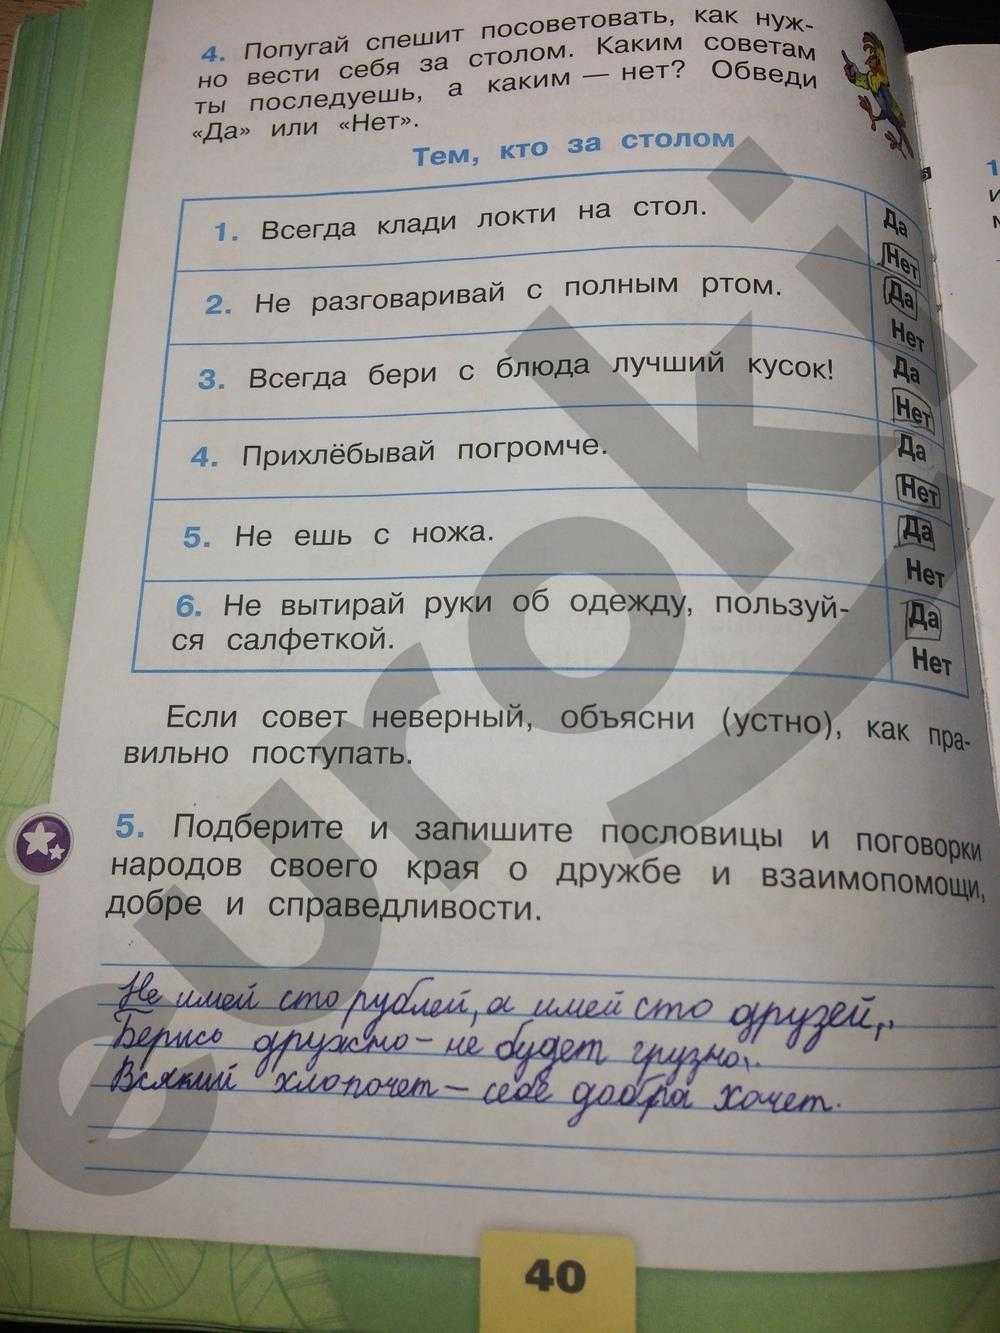 4. Попугай спешит посоветовать, как нуж-
но вести себя за столом. Каким советам
ты последуешь, а каким — нет? Обведи
«Да» или «Нет».
Тем, кто за столом
1. Всегда клади локти на стол.
Да
Нет
2. Не разговаривай с полным ртом.
Да
Нет
3. Всегда бери с блюда лучший кусок!
Да
Нет
4. Прихлёбывай погромче.
Да
Нет
5. Не ешь с ножа.
Да
Нет
6. Не вытирай руки об одежду, пользуй-
ся салфеткой.
Да
Нет
Если совет неверный, объясни (устно), как пра-
вильно поступать.
5. Подберите и запишите пословицы и поговорки
народов своего края о дружбе и взаимопомощи,
добре и справедливости.
Не имей сто рублей, а имей сто друзей,
Берись дружно - не будет грузно.
Всякий хлопочет - себе добра хочет.
40
euroki
1